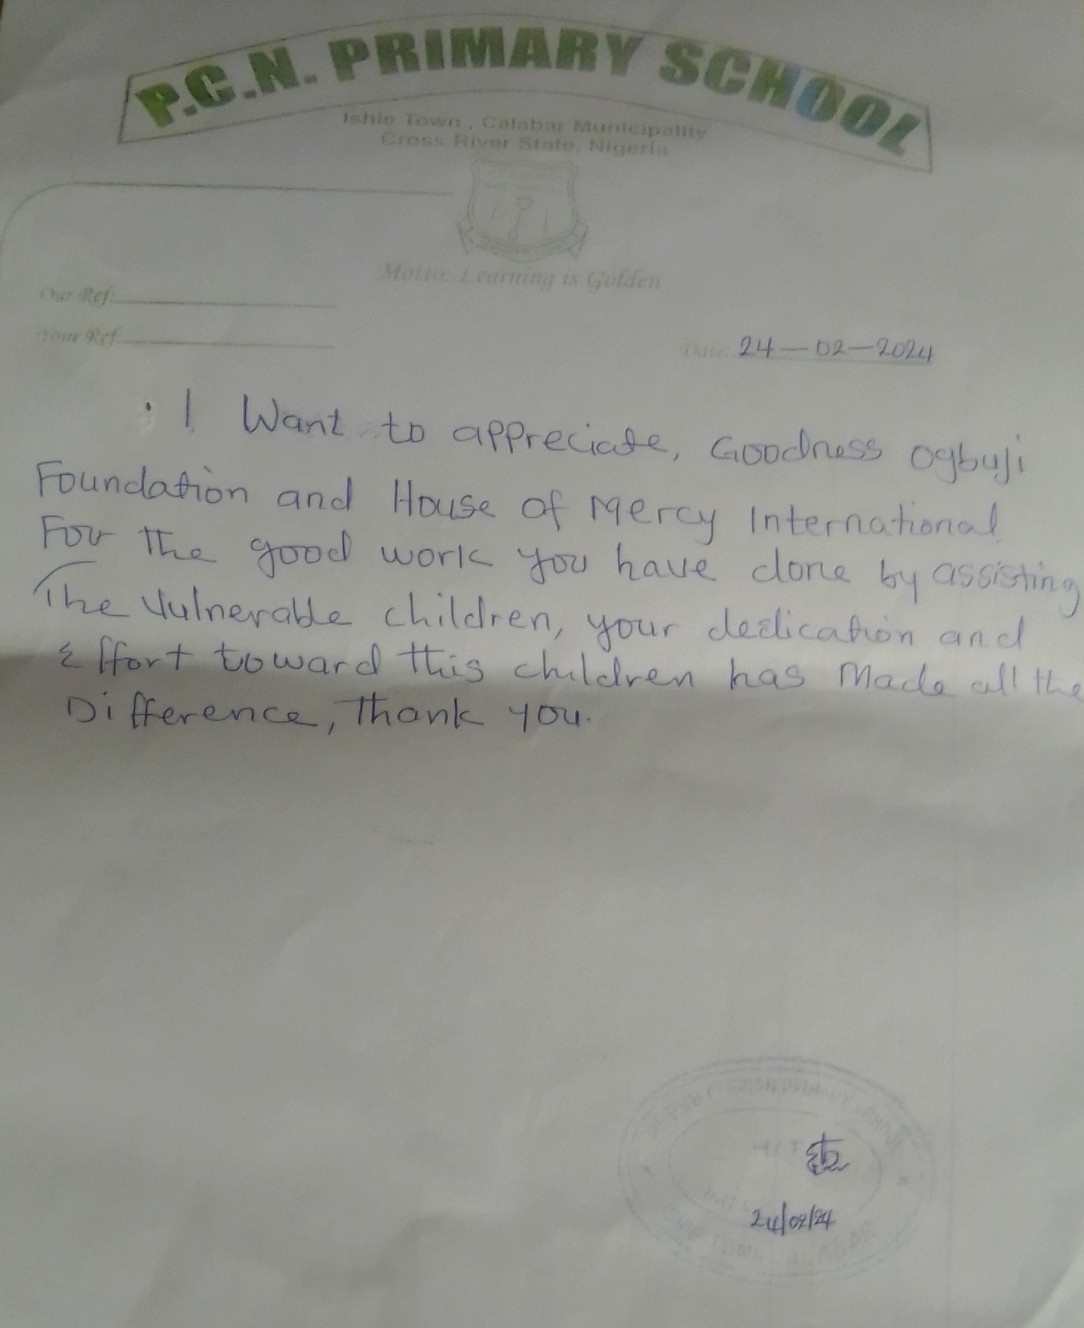 P.C.N. PRIMARY SCHOOL
Ishie Town, Calabar Municipality
Cross River State, Nigeria
Motto: Learning is Golden
Our Ref:
Your Ref:
Date: 24-02-2024
I Want to appreciate, Goodness Ogbuji
Foundation and House of Mercy International
For the good work you have done by assisting
The Vulnerable children, your dedication and
Effort toward this children has Made all the
Difference, Thank you.
24/02/24